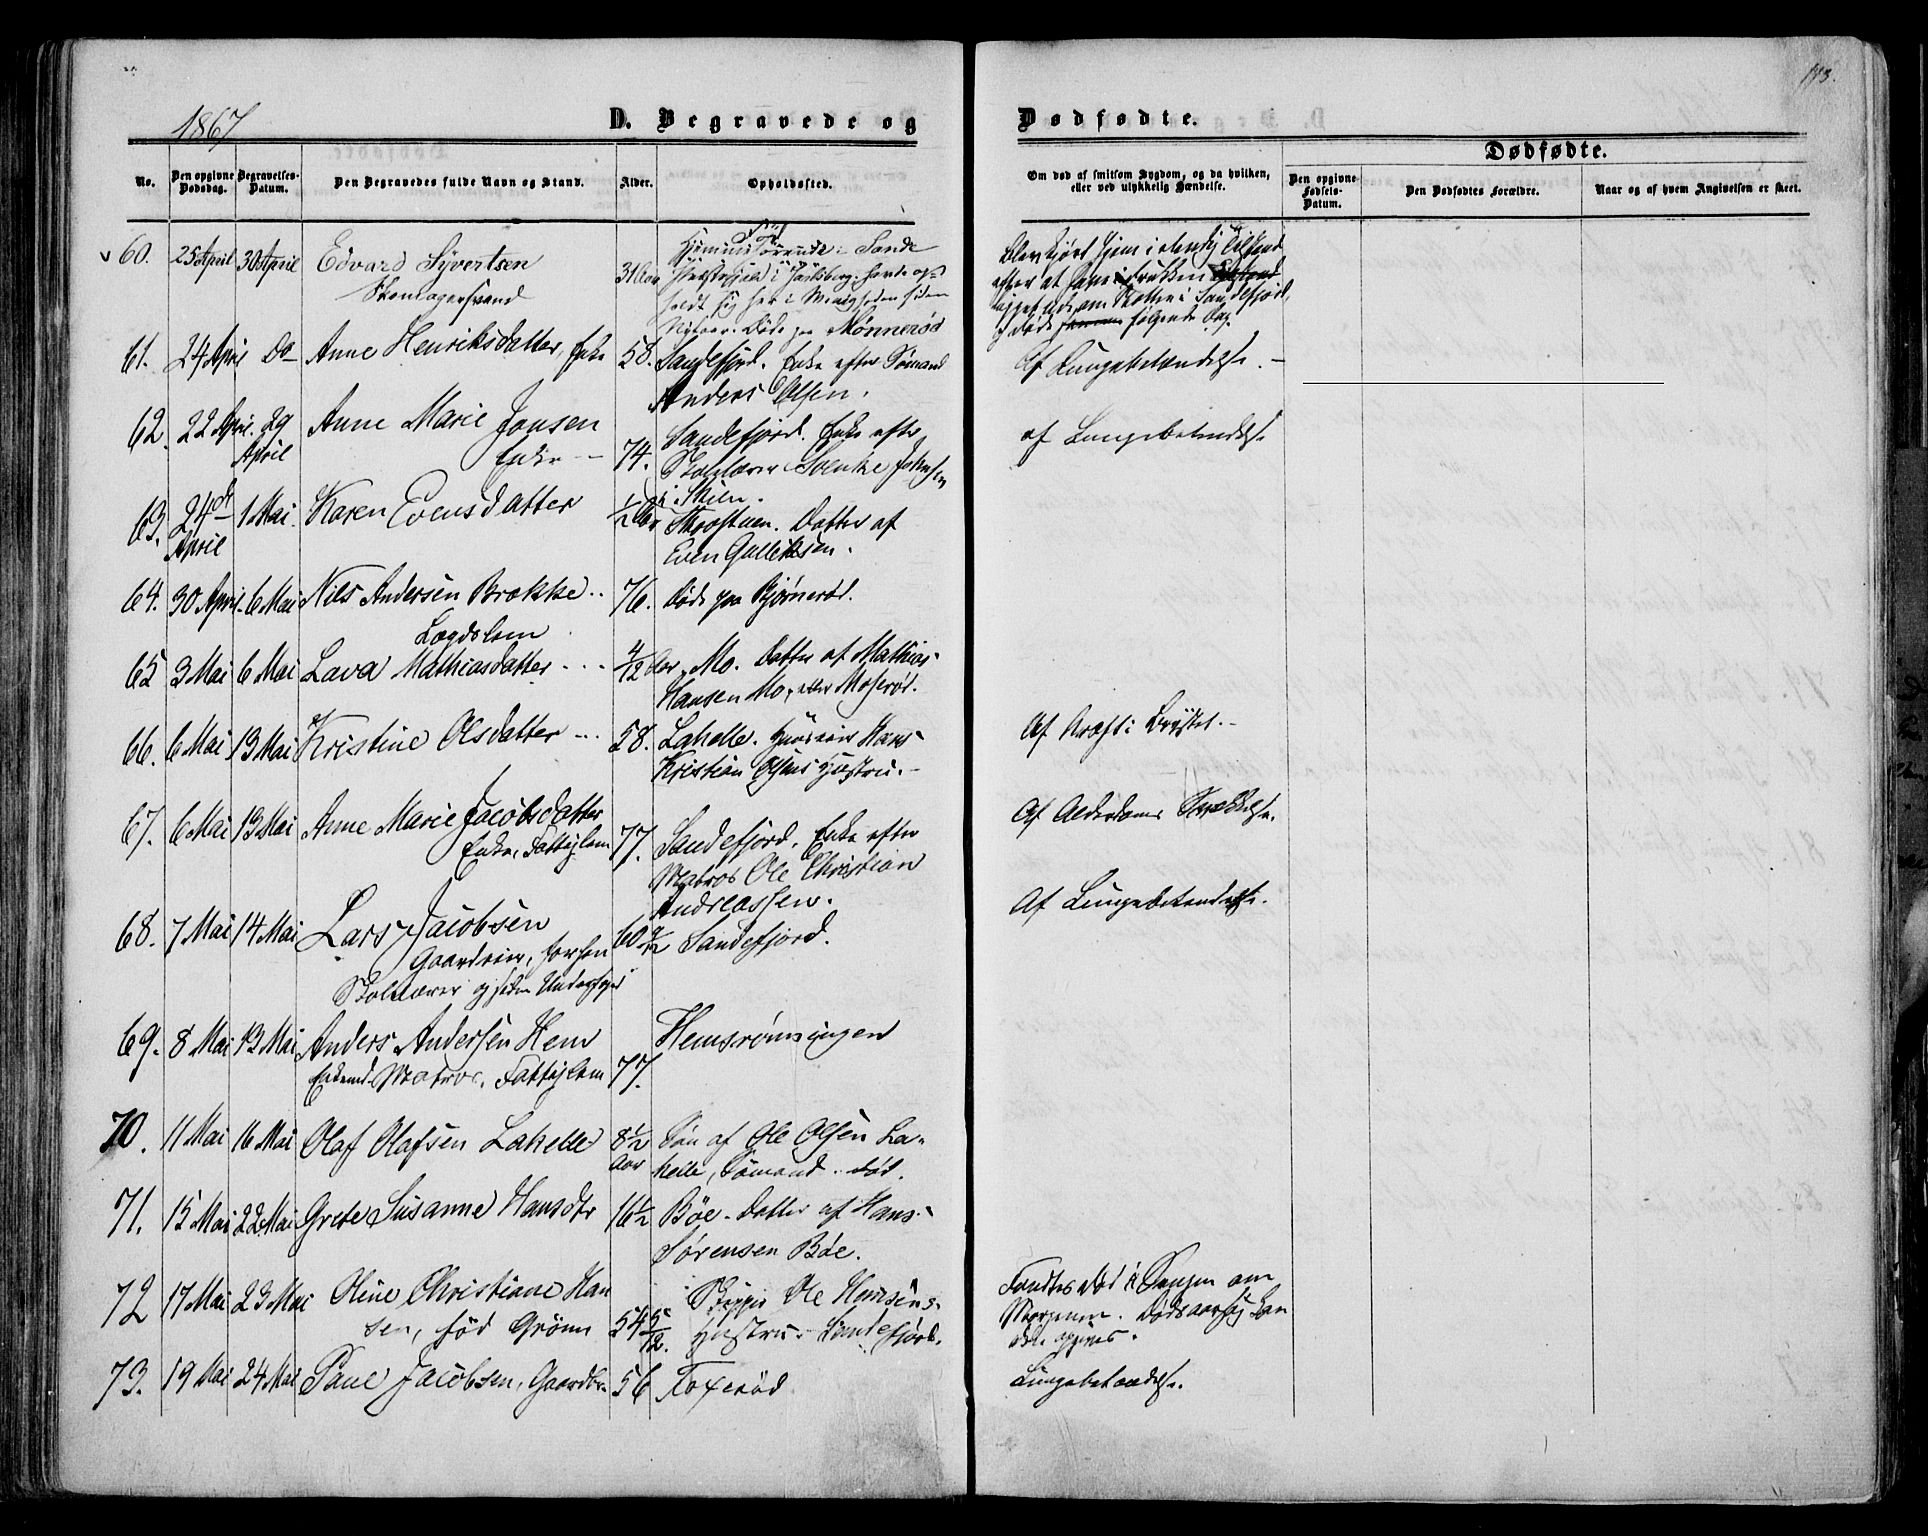 193.
1867
D. Begravede og
Dødfødte.
No.
Den opgivne Dødsdag.
Begravelses-Datum.
Den Begravedes fulde Navn og Stand.
Alder.
Opholdssted.
Om død af smitsom Sygdom, og da hvilken, eller ved ulykkelig Hændelse.
Dødfødte.
Den opgivne Fødsels-Datum.
Den Dødfødtes Forældre.
Naar og af hvem Angivelsen er skeet.
60. 25 April 30 April Edvard Syvertsen 31 Aar
Skomagersvend
Sande
Præstegjeld i Jarlsberg. havde op-
holdt sig her i Menigheden siden
Nytaar. Døde paa Mønnerød
Blev kjørt hjem i elendig Tilstand
efter at have i drukken Tilstand
ligget ude om Natten i Sandefjord,
og døde følgende Dag.
61. 24 April Do Anne Henriksdatter, Enke 58. Sandefjord. Enke efter Sømand
Anders Olsen.
Af Lungebetændelse.
62. 22 April. 29 April Anne Marie Jonsen
Enke 74. Sandefjord. Enke efter
Skolelærer Svenke Johnsen
i Skien.
af Lungebetændelse
63. 24de April 1 Mai Karen Evensdatter 1/2 Aar Skrostuen. Datter af
Even Gulleksen.
64. 30 April. 6 Mai Nils Andersen Brække 76. Døde paa Bjørnerød.
Lægdslem
65 3 Mai 6 Mai Lava Mathiasdatter 4/12 Aar. Mo. Datter af Mathias
Hansen Mo, eller Moserød.
66. 6 Mai 13 Mai Kristine Olsdatter 58. Lahelle. Huuseier Hans
Kristian Olsens Hustru.
Af Kræft i Brystet.
67. 6 Mai 13 Mai Anne Marie Jacobsdatter
Enke, Fattiglem 77. Sandefjord, Enke efter
Matros Ole Christian
Andreassen.
Af Alderdoms Svækkelse.
68. 7 Mai 14 Mai Lars Jacobsen 60 9/12 Sandefjord.
Gaardeier, forhen
Skolelærer og siden Underfoged
Af Lungebetændelse.
69. 8 Mai 13 Mai Anders Andersen Hem
Enkemd. Matros. Fattiglem 77.
Hemsrønningen
70. 11 Mai 16 Mai Olaf Olafsen Lahelle 8 1/2 Aar Søn af Ole Olsen La-
helle, Sømand død.
71. 15 Mai 22 Mai Grete Susanne Hansdtr 16 1/2 Bøe. Datter af Hans
Sørensen Bøe.
72 17 Mai 23 Mai Oline Christiane Han
sen, fød Grønn 54 5/12. Skipper Ole Hansens
Hustru. Sandefjord.
Fandtes død i Sengen om
Morgenen. Dødsaarsag kan
ikke opgives.
73. 19 Mai 24 Mai Paul Jacobsen, Gaardbr. 56 Foxerød
Lungebetændelse.